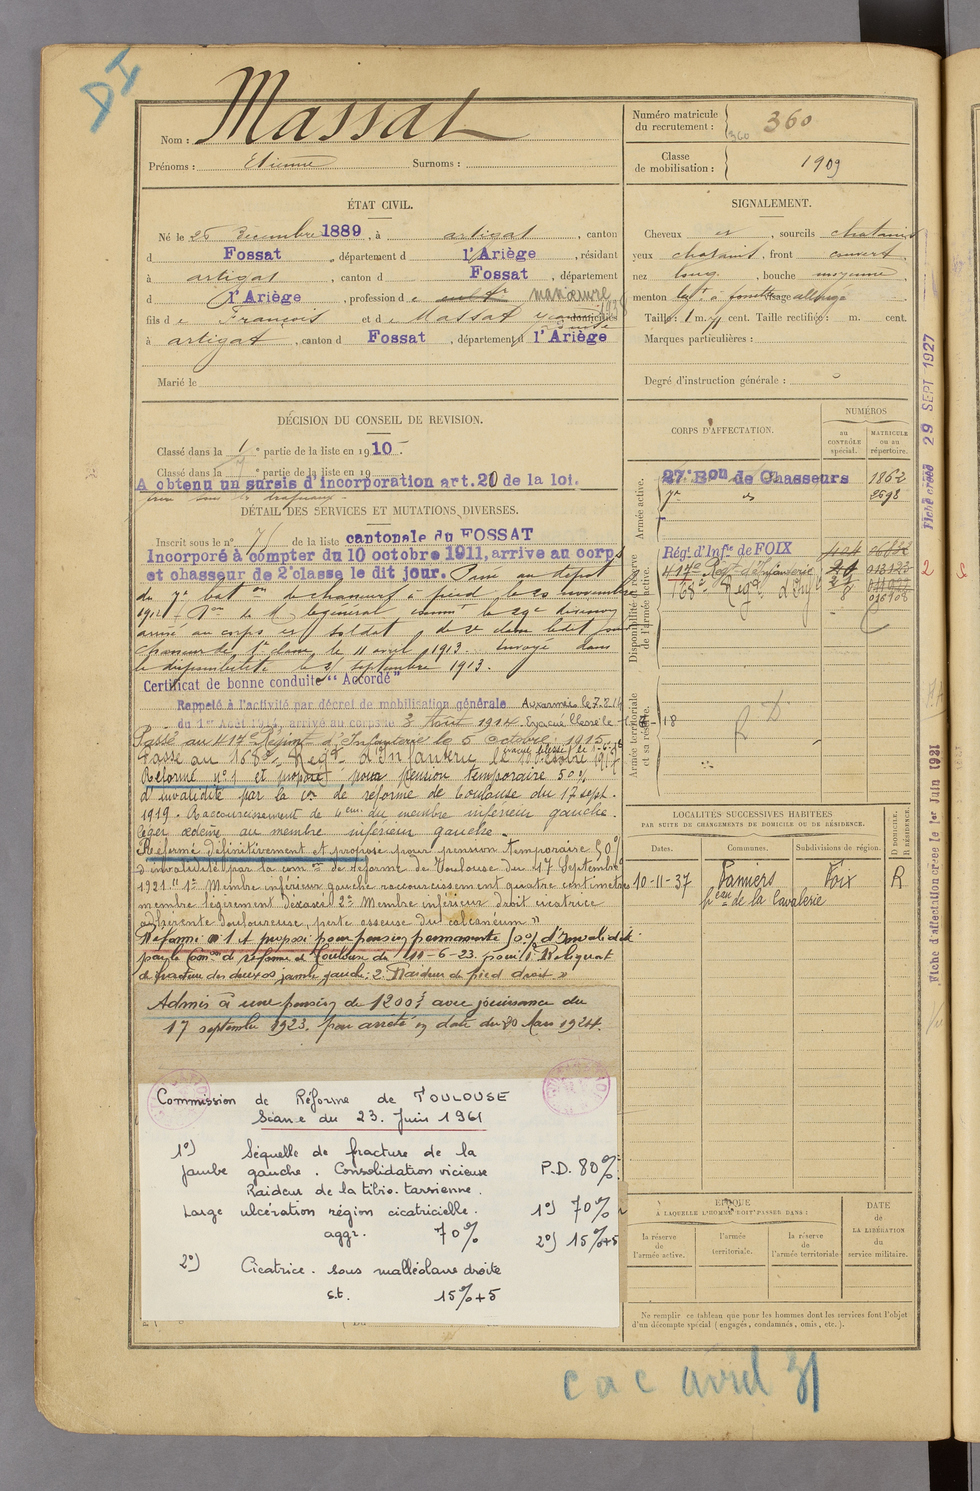 DI
Nom : Massat
Prénoms : Etienne Surnoms :
Numéro matricule du recrutement : 360
360
Classe de mobilisation : 1909
ÉTAT CIVIL.
Né le 26 Décembre 1889, à artigat, canton
d Fossat, département d l'Ariège, résidant
à artigat, canton d Fossat, département
d l'Ariège, profession de cultr manœuvre
fils de François et de Massat domiciliés
à artigat, canton d Fossat, département d l'Ariège
Marié le
SIGNALEMENT.
Cheveux et, sourcils chatains
yeux chatains, front couvert
nez long, bouche moyenne
menton à fossette visage allongé
Taille : 1 m. 71 cent. Taille rectifiée : m. cent.
Marques particulières :
Degré d'instruction générale :
DÉCISION DU CONSEIL DE REVISION.
Classé dans la 1e partie de la liste en 1910.
Classé dans la e partie de la liste en 19
A obtenu un sursis d'incorporation art. 20 de la loi.
DÉTAIL DES SERVICES ET MUTATIONS DIVERSES.
Inscrit sous le n° de la liste cantonale du FOSSAT
Incorporé à compter du 10 octobre 1911, arrive au corps
et chasseur de 2e classe le dit jour. Passé au dépôt
du 7e baton de chasseurs à pied le 20 novembre
1912. Don de M. le général commt le 29e division
arrivé au corps et soldat de 2e classe ledit jour
Chasseur de 1e classe le 11 avril 1913. Envoyé dans
la disponibilité le septembre 1913.
Certificat de bonne conduite "Accordé"
Rappelé à l'activité par décret de mobilisation générale Aux armées le 7.8.14
du 1er Août 1914, arrivé au corps le 3 Août 1914. Evacué blessé le
Passé au 417e Régiment d'Infanterie le 5 octobre 1915.
Passé au 168e Regt d'Infanterie le 10 octobre 1917
Réformé n°1 et proposé pour pension temporaire 50%
d'invalidité par la Con de réforme de Toulouse du 17 sept.
1919. Raccourcissement de 4cm du membre inférieur gauche.
léger œdème au membre inférieur gauche.
Réformé définitivement et proposé pour pension temporaire 50%
d'invalidité par la com on de Réforme de Toulouse du 17 Septembre
1921 "1° Membre inférieur gauche raccourcissement quatre centimètres
membre légèrement désaxé 2° Membre inférieur droit cicatrice
adhérente douloureuse, perte osseuse du calcanéum"
Réformé n°1 et proposé pour pension permanente 50% d'Invalidité
par la Com on de réforme de Toulouse du 11-6-23. pour 1° Reliquat
de fracture des deux os jambe gauche ; 2° Raideur de pied droit"
Admis à une pension de 1200f avec jouissance du
17 septembre 1923. par arrêté en date du 20 Mars 1924.
Commission de Réforme de TOULOUSE
Séance du 23 Juin 1961
1°) Séquelle de fracture de la
jambe gauche. Consolidation vicieuse P.D. 80%
Raideur de la tibio-tarsienne.
Large ulcération région cicatricielle. 1°) 70%
aggr. 70% 2°) 15%+5
2°) Cicatrice sous malléolaire droite
s.t. 15%+5
CORPS D'AFFECTATION.
NUMÉROS
au CONTRÔLE spécial.
MATRICULE ou au répertoire.
Armée active.
27e Bon de Chasseurs 1862
7e do 2598
Disponibilité et réserve de l'armée active.
Rég. d'Infie de FOIX
417e Régt d'Infanterie
168e Regt d'Infie
Armée territoriale et sa réserve.
LOCALITÉS SUCCESSIVES HABITÉES
PAR SUITE DE CHANGEMENTS DE DOMICILE OU DE RÉSIDENCE.
Dates. Communes. Subdivisions de région. D DOMICILE. R RÉSIDENCE.
10-11-37 Pamiers Foix R
de la Cavalerie
ÉPOQUE
À LAQUELLE L'HOMME DOIT PASSER DANS :
la réserve de l'armée active.
l'armée territoriale.
la réserve de l'armée territoriale
DATE de LA LIBÉRATION du service militaire.
Ne remplir ce tableau que pour les hommes dont les services font l'objet
d'un décompte spécial (engagés, condamnés, omis, etc.).
Fiche créée 29 SEPT 1927
Fiche d'affectation créée le 1er Juin 1931
cac avril 31